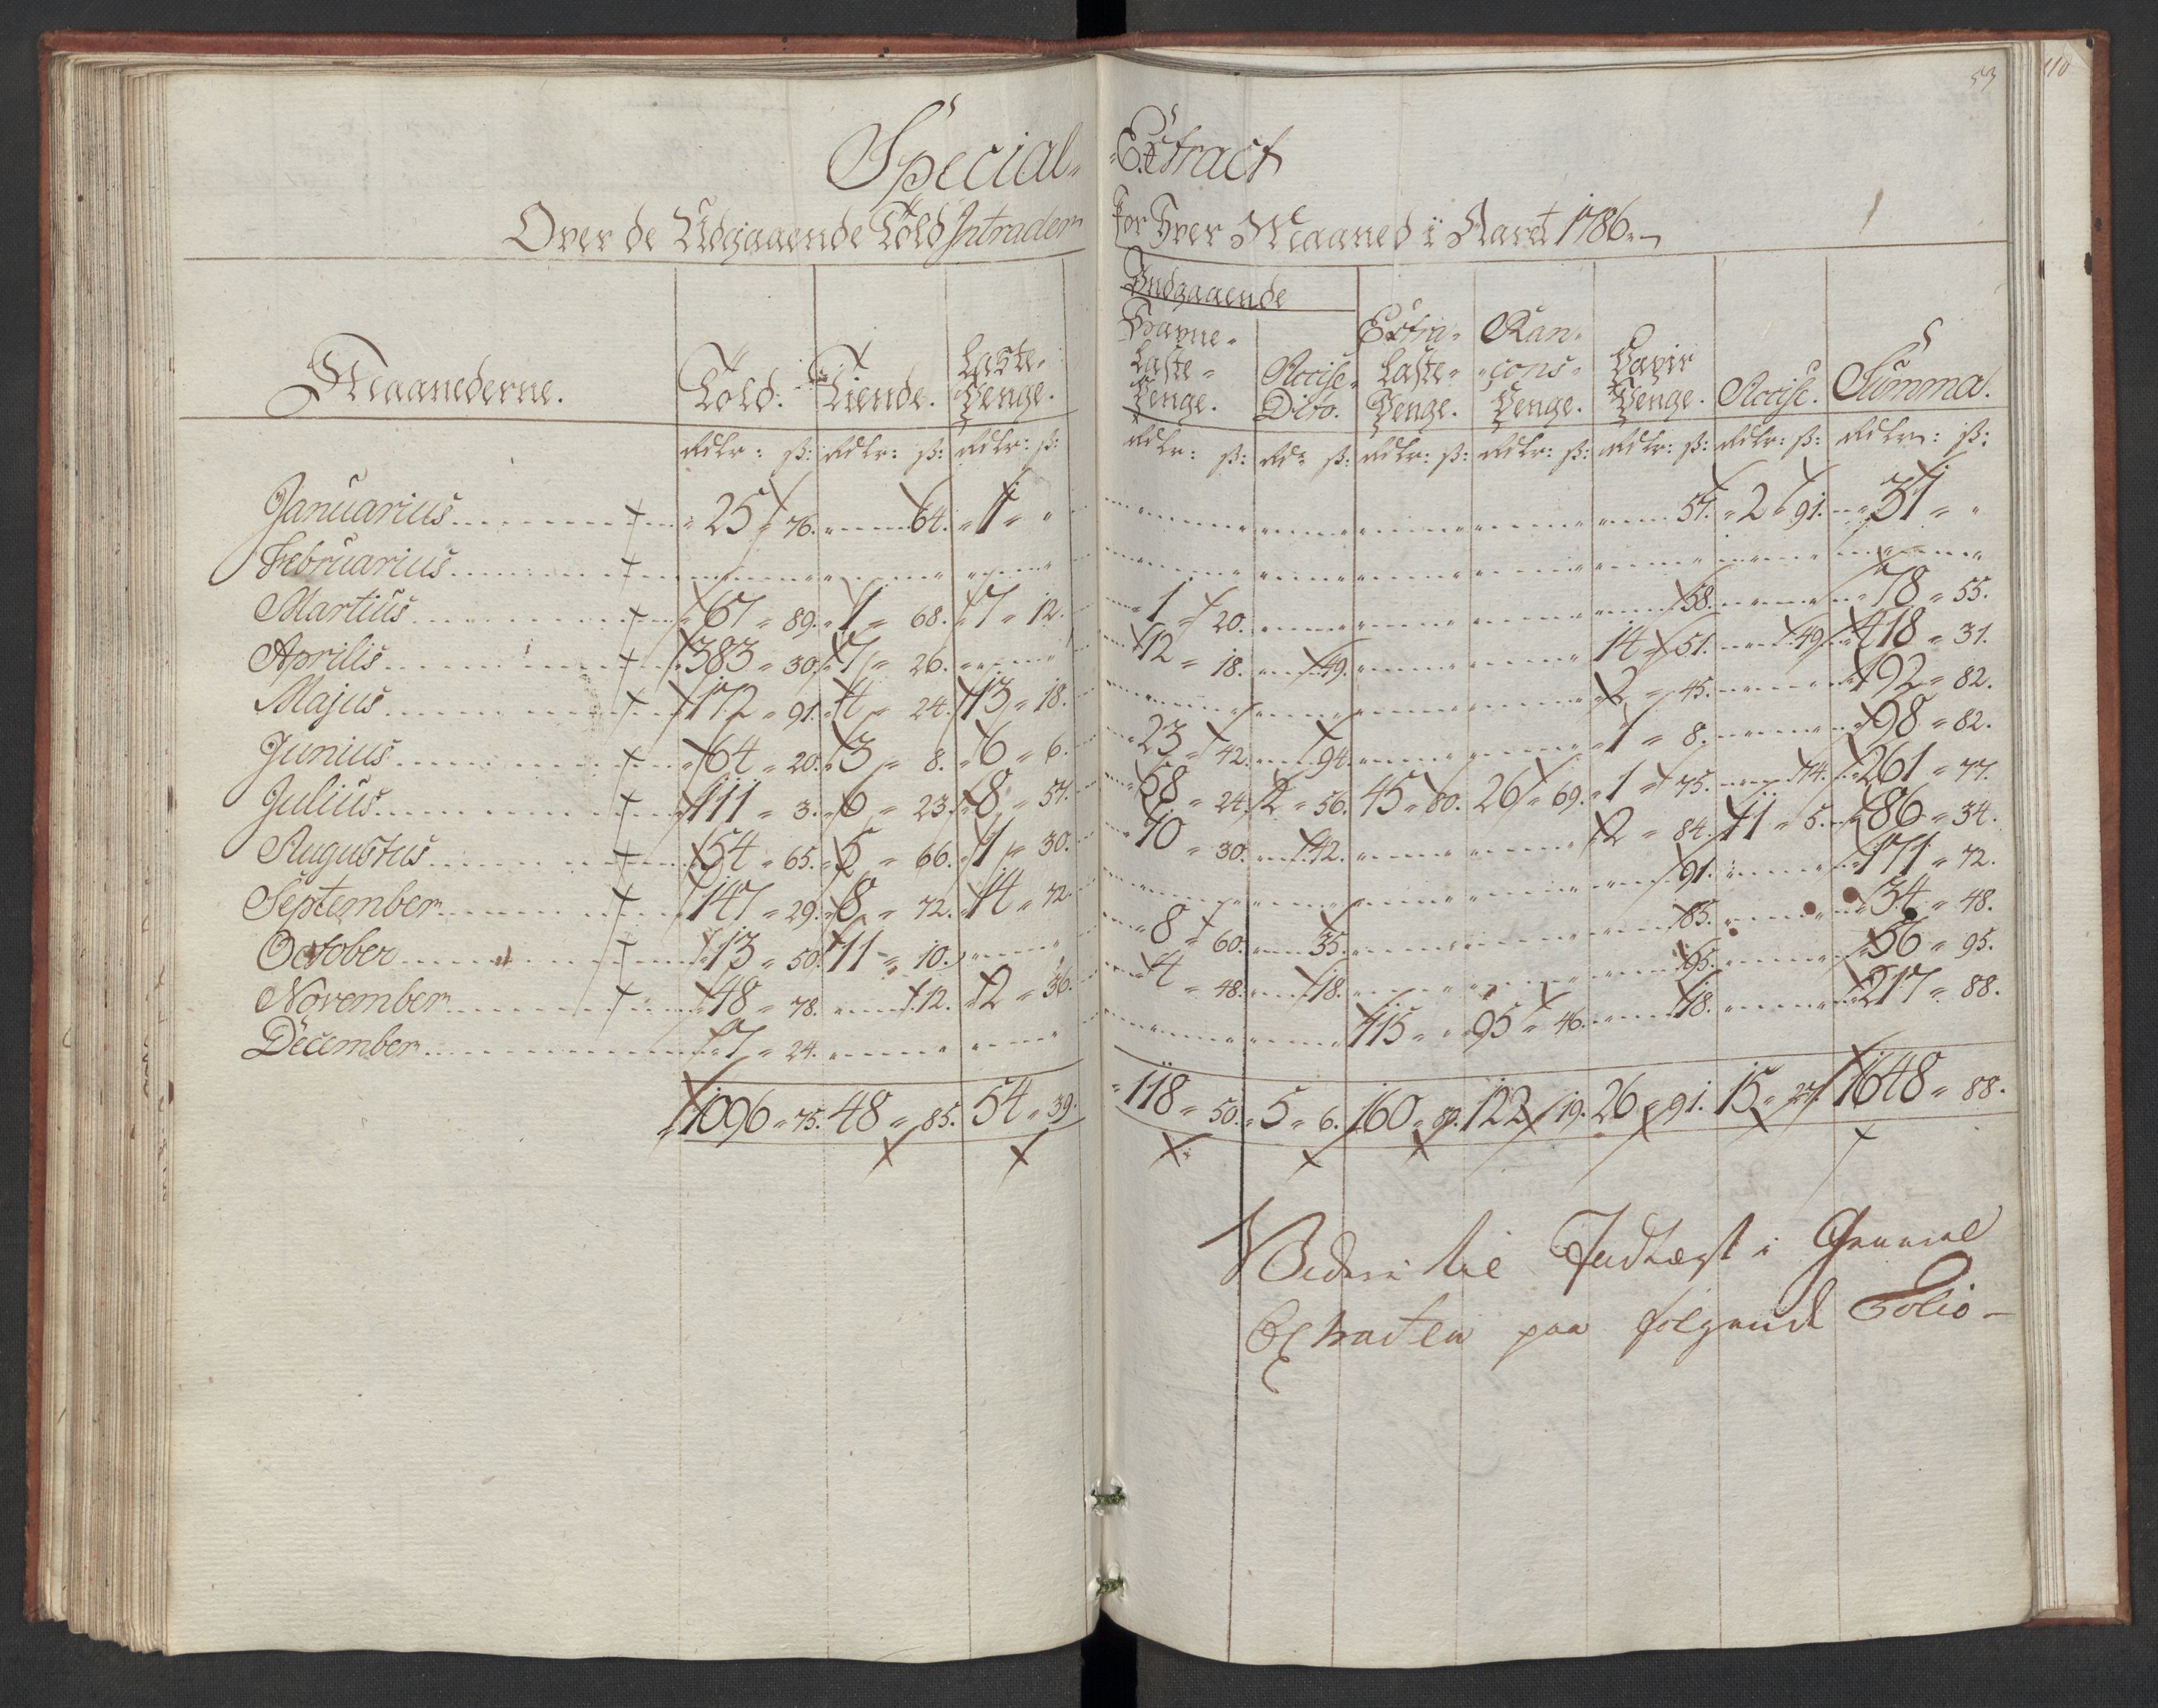 53
110
Special- Extract
Over de Udgaaende Told Intrader for Hver Maaned i Aaret 1786.
Maanederne. Told. Tiende. Laste-Penge. Indgaaende Havne-Laste-Penge. Accise Dito. Extra-Laste-Penge. Ran-cons-Penge. Papir Penge. Accise. Summa.
Rdlr: ß: Rdlr: ß: Rdlr: ß: Rdlr: ß: Rdr ß: Rdlr: ß: Rdlr: ß: Rdlr: ß: Rdlr: ß: Rdlr: ß:
Januarius 25 " 76. 64. 1 " " 57. 2 " 91. 31 " "
Februarius
Martius 67 " 89. 1 " 68. 7 " 12. 1 " 20. 58. 78 " 55.
Aprilis 383 " 30. 7 " 26. 12 " 18. 49. 14 " 51. 49. 418 " 31.
Majus 172 " 91. 4 " 24. 13 " 18. 2 " 45. 192 " 82.
Junius 64 " 20. 3 " 8. 6 " 6. 23 " 42. 94. 1 " 8. 98 " 82.
Julius 111 " 3. 6 " 23. 8 " 57. 58 " 24. 2 " 56. 45 " 80. 26 " 69. 1 " 75. 74. 261 " 77.
Augustus 54 " 65. 5 " 66. 1 " 30. 10 " 30. 42. 2 " 84. 11 " 5. 86 " 34.
September 147 " 29. 8 " 72. 14 " 72. 91. 171 " 72.
October 13 " 50. 11 " 10. 8 " 60. 35. 85. 34 " 48.
November 48 " 78. 12. 2 " 36. 4 " 48. 18. 95. 56 " 95.
December 7 " 24. 115 " " 95 " 46. 18. 217 " 88.
1096 " 75. 48 " 85. 54 " 39. 118 " 50. 5 " 6. 160 " 80. 122 " 19. 26 " 91. 15 " 27. 1648 " 88.
Videre til Indtægt i General
Extracten paa følgende Folio -